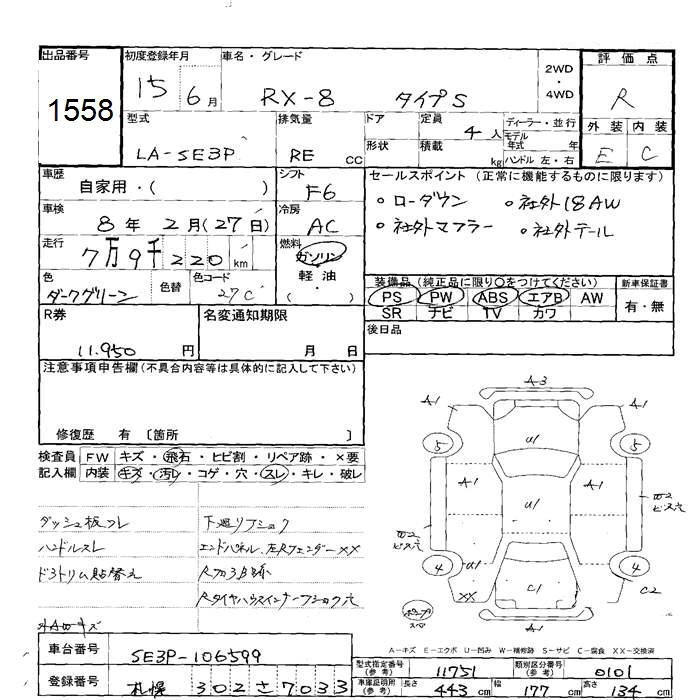 出品番号 初度登録年月 車名・グレード 2WD ・ 4WD 評価点
1558 15 6月 RX-8 タイプS R
型式 排気量 ドア 定員 ディーラー・並行 外装 内装
LA-SE3P RE cc 形状 4人 積載 kg モデル年式 年 ハンドル 左・右 E C
車歴 自家用・( ) シフト F6 セールスポイント(正常に機能するものに限ります)
車検 8年 2月(27日) 冷房 AC 。ローダウン 。社外18AW
走行 7万9千220km 燃料 ガソリン 軽油 ( ) 。社外マフラー 。社外テール
色 ダークグリーン 色替 色コード 27C
装備品(純正品に限り○をつけてください) 新車保証書
PS PW ABS エアB AW 有・無
SR ナビ TV カワ
R券 11.950円 名変通知期限 月 日 後日品
注意事項申告欄(不具合内容等は具体的に記入して下さい)
修復歴 有 〔箇所 〕
検査員記入欄 FW キズ・飛石・ヒビ割・リペア跡・×要
内装 キズ・汚レ・コゲ・穴・スレ・キレ・破レ
ダッシュ板ズレ 下廻リフショク
ハンドルスレ エンドパネル.左Rフェンダーxx
ドア3トリム貼替え
Rタイヤハウスインナーフショク穴
A3
A1 A1
5 U1 5
A1 A1
W2 ビス穴 U1 W2 ビス穴
4 U1 4
XX C1 C2
A1
A-キズ E-エクボ U-凹み W-補修跡 S-サビ C-腐食 XX-交換済
車台番号 SE3P-106599
札幌 302 さ 7033
型式指定番号(参考) 11751 類別区分番号(参考) 0101
車庫証明用(参考) 長さ 443cm 幅 177cm 高さ 134cm